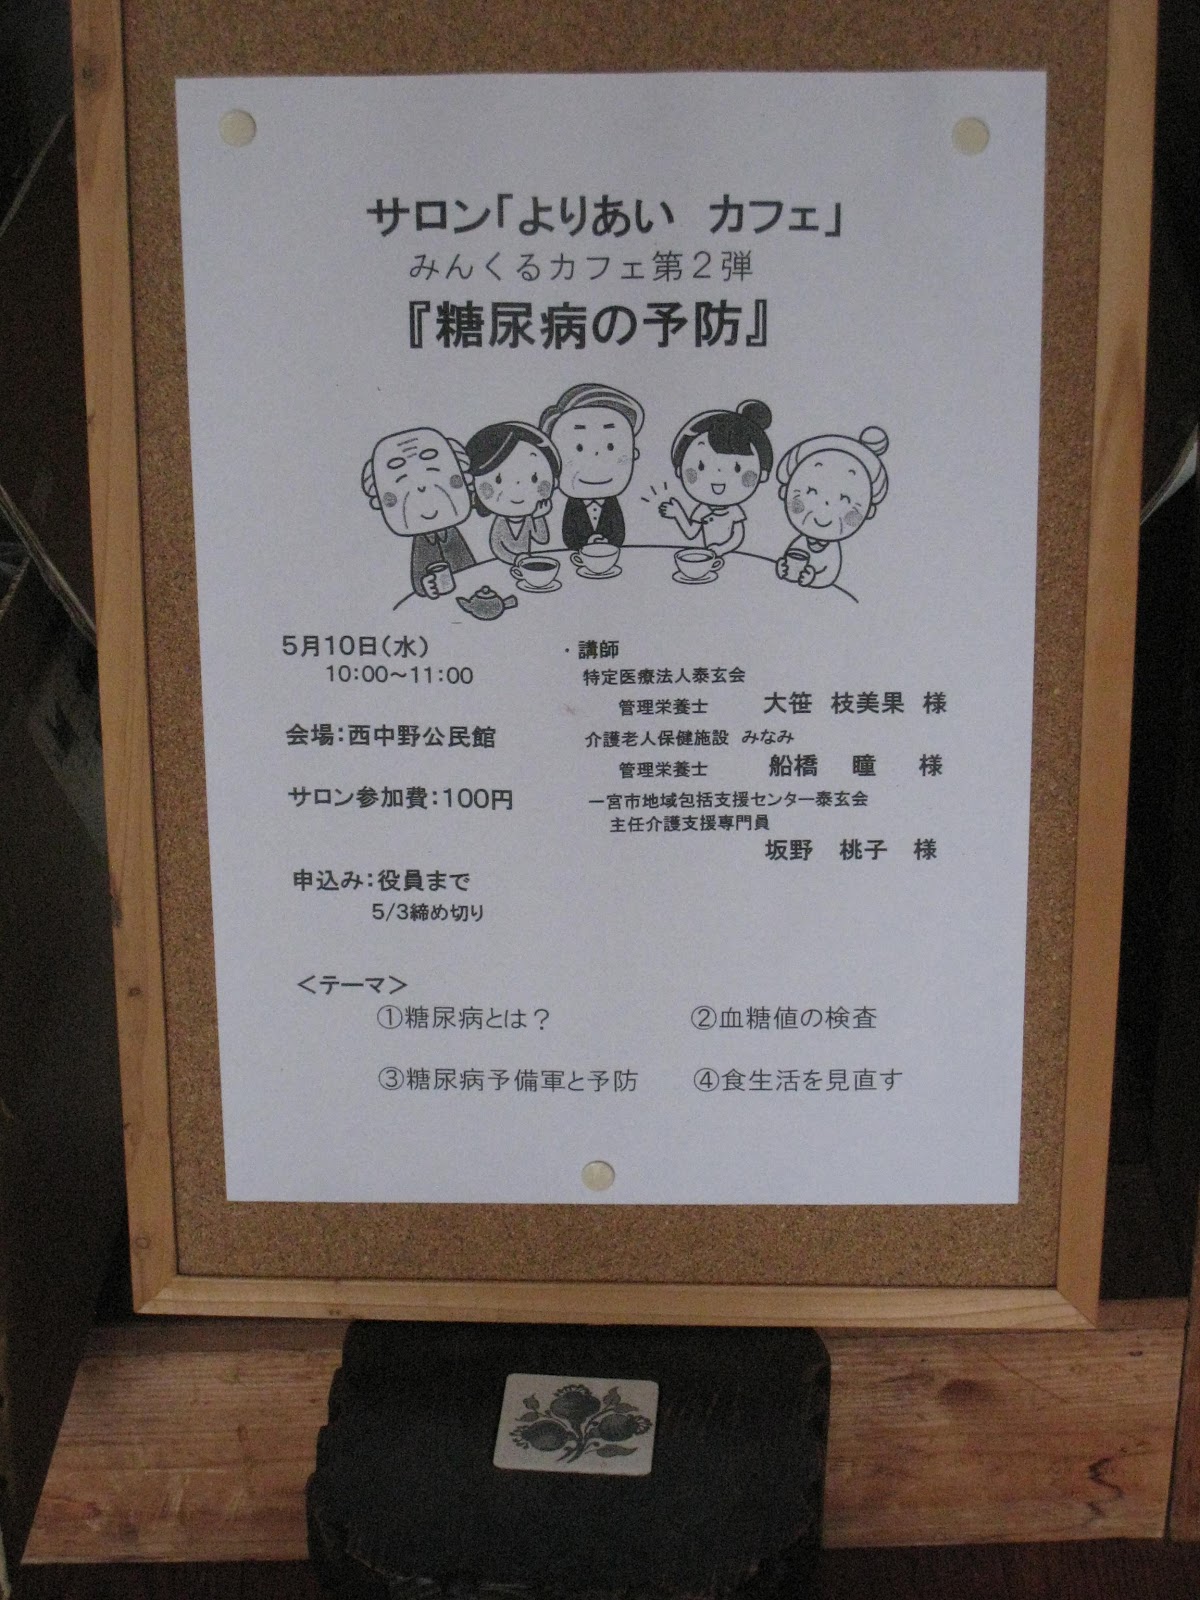 サロン「よりあい　カフェ」
みんくるカフェ第２弾
『糖尿病の予防』
５月１０日（水）
１０：００～１１：００
会場：西中野公民館
サロン参加費：１００円
申込み：役員まで
５/３締め切り
・講師
特定医療法人泰玄会
管理栄養士　大笹　枝美果　様
介護老人保健施設　みなみ
管理栄養士　船橋　瞳　様
一宮市地域包括支援センター泰玄会
主任介護支援専門員
坂野　桃子　様
＜テーマ＞
①糖尿病とは？　②血糖値の検査
③糖尿病予備軍と予防　④食生活を見直す